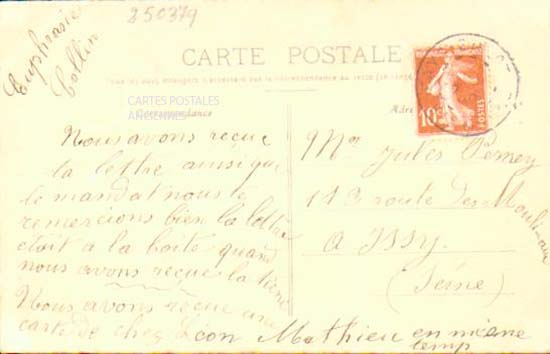 250379
Euphrasie
Collin
CARTE POSTALE
CARTES POSTALES
ANCIENNES
Correspondance
10c
POSTES
Nous avons reçue
ta lettre ainsi que
le mandat nous te
remercions bien ta lettre
était à la boite quand
nous avons reçue la tiene
Nous avons reçue une
carte de chez Leon Mathieu en même
temp
Mr Jules
113 route des Moulineaux
a Issy.
(Seine)